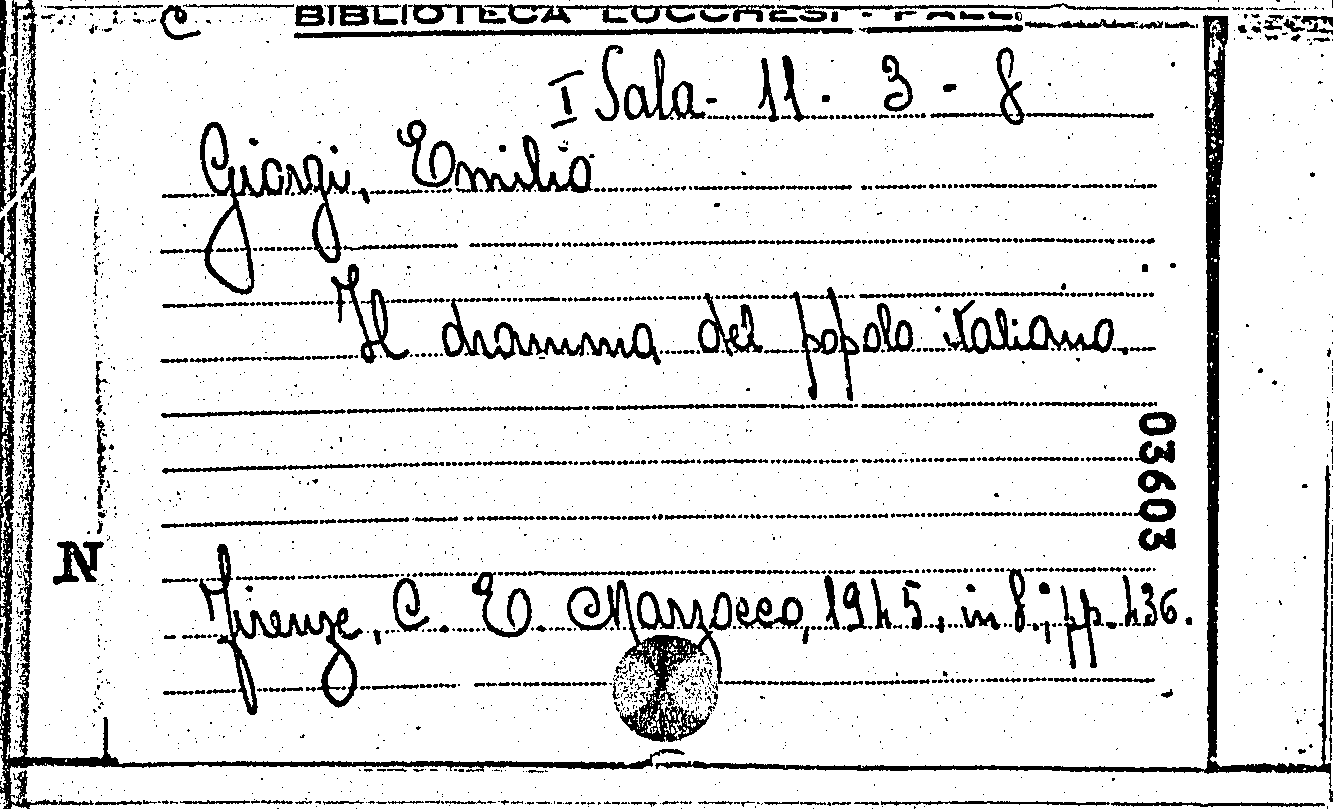 C BIBLIOTECA LUCCHESI - PALLI
I Sala - 11 . 3 - 8
Giorgi, Emilio
Il dramma del popolo italiano.
03603
N
Firenze, C. E. Marzocco, 1945, in 8.°; pp. 436.